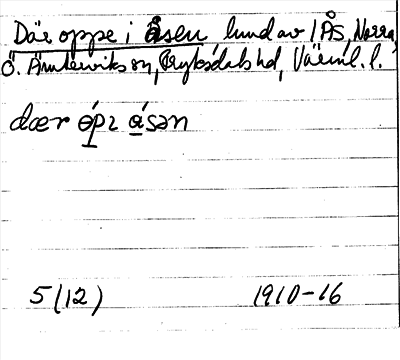 Där oppe i åsen, lund av 1 ÅS, Norra,
Ö. Ämterviks sn, Fryksdals hd, Värml. l.
dær ópɪ ásən
5(12) 1910-16